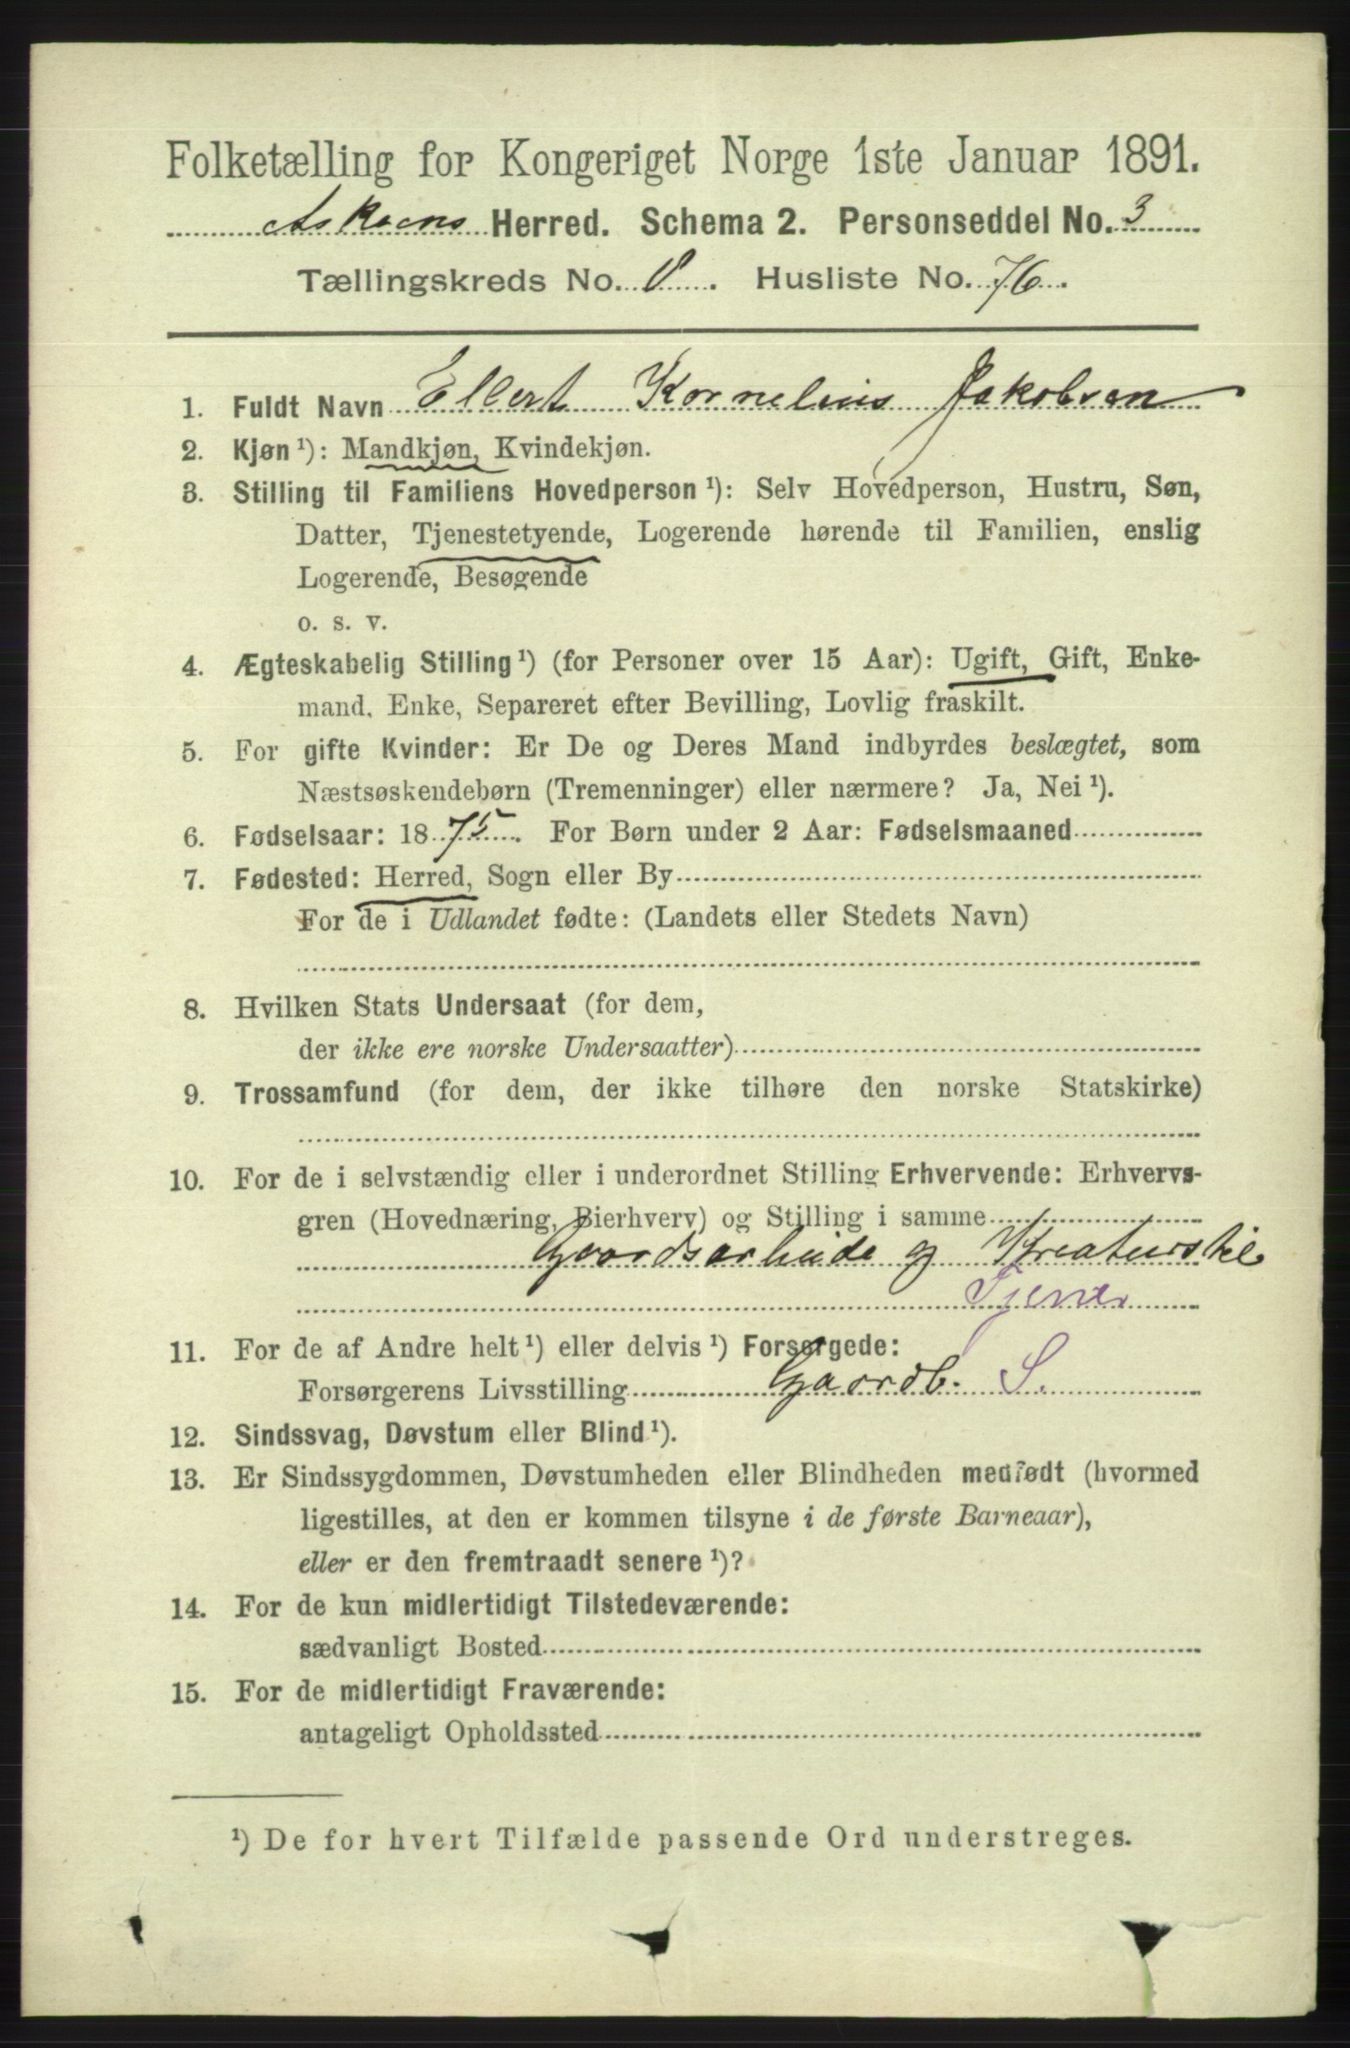 Folketælling for Kongeriget Norge 1ste Januar 1891.
Askøens Herred. Schema 2. Personseddel No. 3
Tællingskreds No. 8. Husliste No. 76.
1. Fuldt Navn Ellert Kornelius Jakobsen
2. Kjøn ¹): Mandkjøn, Kvindekjøn.
3. Stilling til Familiens Hovedperson ¹): Selv Hovedperson, Hustru, Søn,
Datter, Tjenestetyende, Logerende hørende til Familien, enslig
Logerende, Besøgende
o. s. v.
4. Ægteskabelig Stilling ¹) (for Personer over 15 Aar): Ugift, Gift, Enke-
mand, Enke, Separeret efter Bevilling, Lovlig fraskilt.
5. For gifte Kvinder: Er De og Deres Mand indbyrdes beslægtet, som
Næstsøskendebørn (Tremenninger) eller nærmere? Ja, Nei ¹).
6. Fødselsaar: 1875. For Børn under 2 Aar: Fødselsmaaned
7. Fødested: Herred, Sogn eller By
For de i Udlandet fødte: (Landets eller Stedets Navn)
8. Hvilken Stats Undersaat (for dem,
der ikke ere norske Undersaatter)
9. Trossamfund (for dem, der ikke tilhøre den norske Statskirke)
10. For de i selvstændig eller i underordnet Stilling Erhvervende: Erhvervs-
gren (Hovednæring, Bierhverv) og Stilling i samme
Gaardsarbeide og Kreaturstel
Tjener
11. For de af Andre helt ¹) eller delvis ¹) Forsørgede:
Forsørgerens Livsstilling Gaardb. S.
12. Sindssvag, Døvstum eller Blind ¹).
13. Er Sindssygdommen, Døvstumheden eller Blindheden medfødt (hvormed
ligestilles, at den er kommen tilsyne i de første Barneaar),
eller er den fremtraadt senere ¹)?
14. For de kun midlertidigt Tilstedeværende:
sædvanligt Bosted
15. For de midlertidigt Fraværende:
antageligt Opholdssted
¹) De for hvert Tilfælde passende Ord understreges.